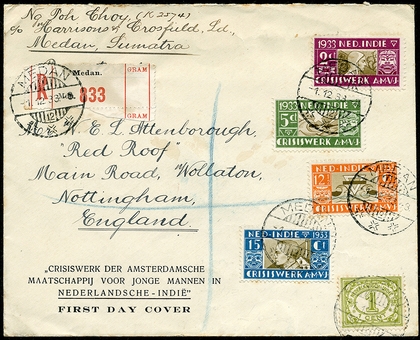 Ng Poh Choy, (K 2574)
c/o Harrisons & Crosfield, Ld.,
Medan, Sumatra
MEDAN
R
Medan.
833
GRAM
GRAM
W. E. L. Attenborough,
"Red Roof"
Main Road, Wollaton,
Nottingham,
England.
1933 NED. INDIE
CRISISWERK A.M.V.J.
1.12.33
1933 NED. INDIE
5ct
CRISISWERK A.M.V.J.
NED. INDIE 1933
12½
CRISISWERK A.M.V.J.
MEDAN
NED-INDIE 1933
15 Ct
CRISISWERK A.M.V.J.
MEDAN
1
"CRISISWERK DER AMSTERDAMSCHE
MAATSCHAPPIJ VOOR JONGE MANNEN IN
NEDERLANDSCHE-INDIË"
FIRST DAY COVER